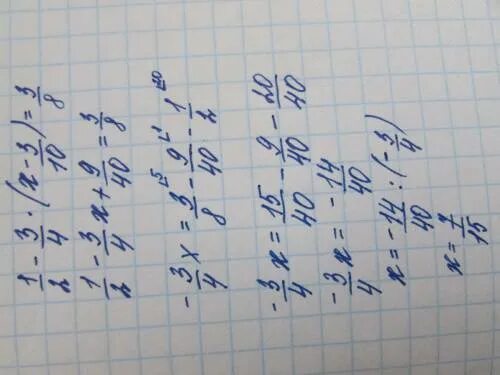 1/2 - 3/4 · (x - 3/10) = 3/8
1/2 - 3/4 x + 9/40 = 3/8
- 3/4 x = 3/8 - 9/40 - 1/2
- 3/4 x = 15/40 - 9/40 - 20/40
- 3/4 x = - 14/40
x = - 14/40 : (- 3/4)
x = 7/15